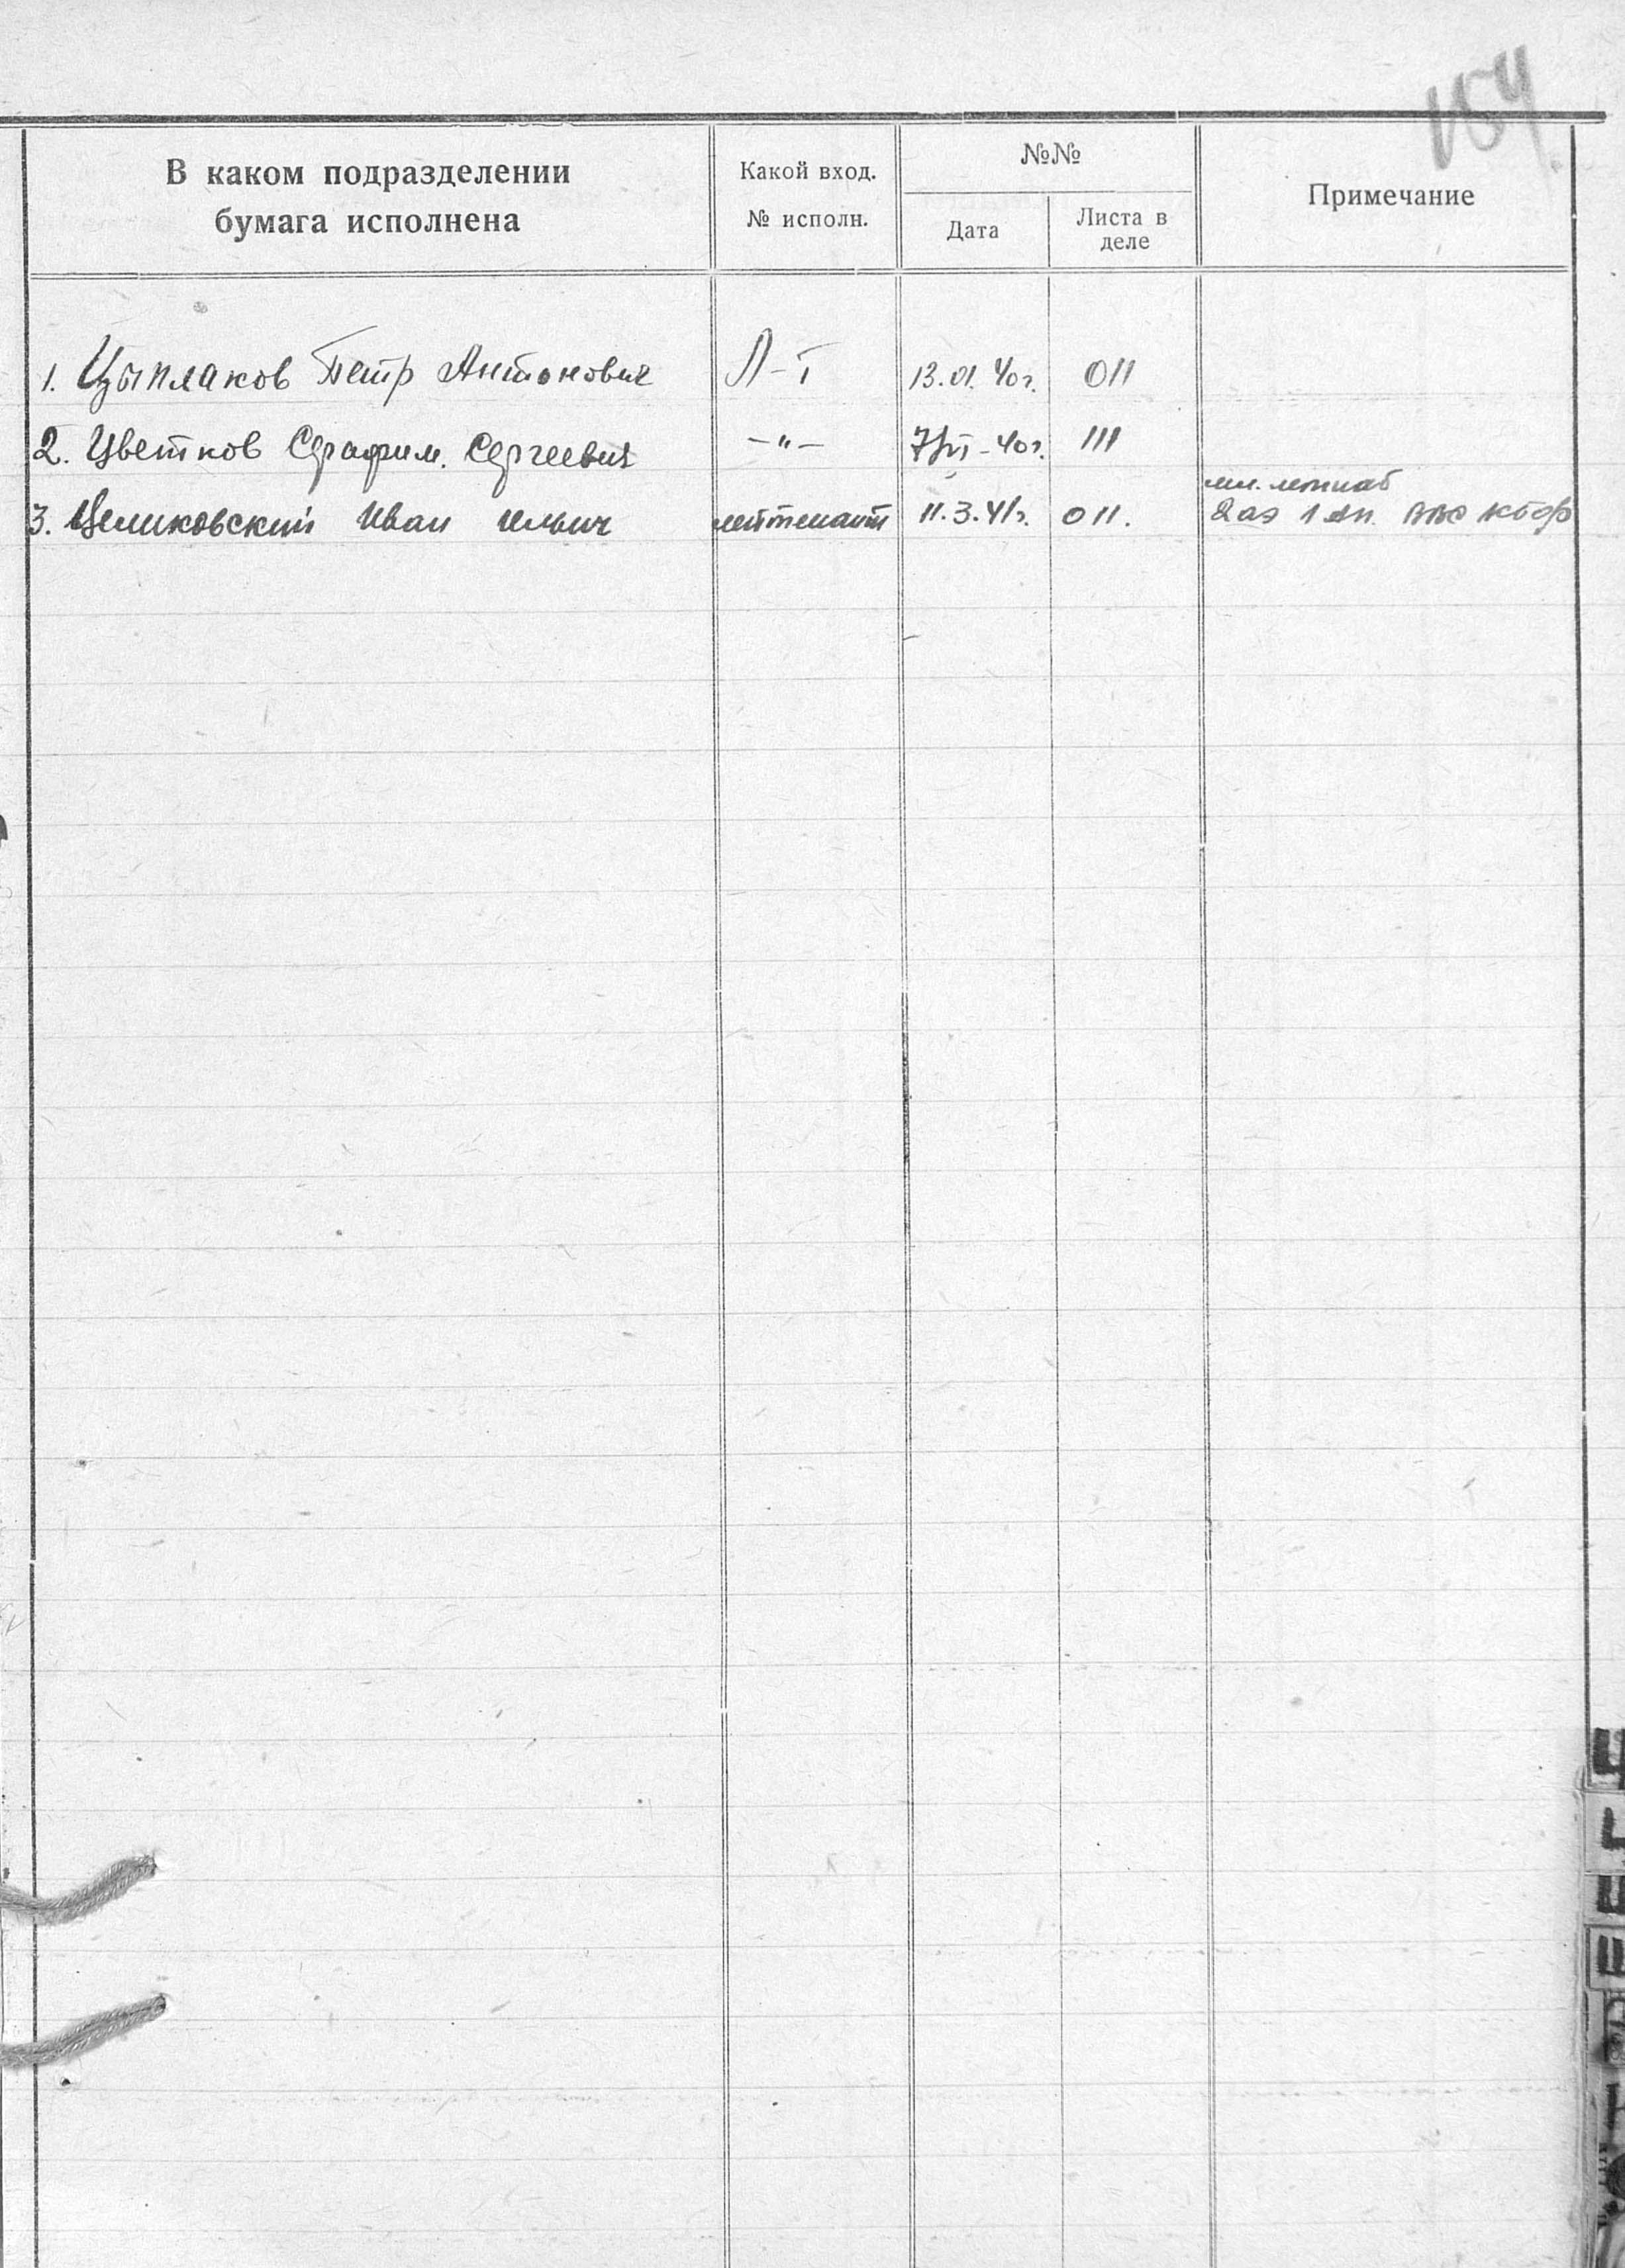 154
В каком подразделении
бумага исполнена
Какой вход.
№ исполн.
№№
Дата
Листа в
деле
Примечание
1. Цыплаков Петр Антонович Л-т 13.01.40г. 011
2. Цветков Серафим. Сергеевич —"— 40г. 111
мл.
3. Целиковский Иван Ильич лейтенант 11.3.41г. 011. 2 аэ 1 ап. ВВС КБФ